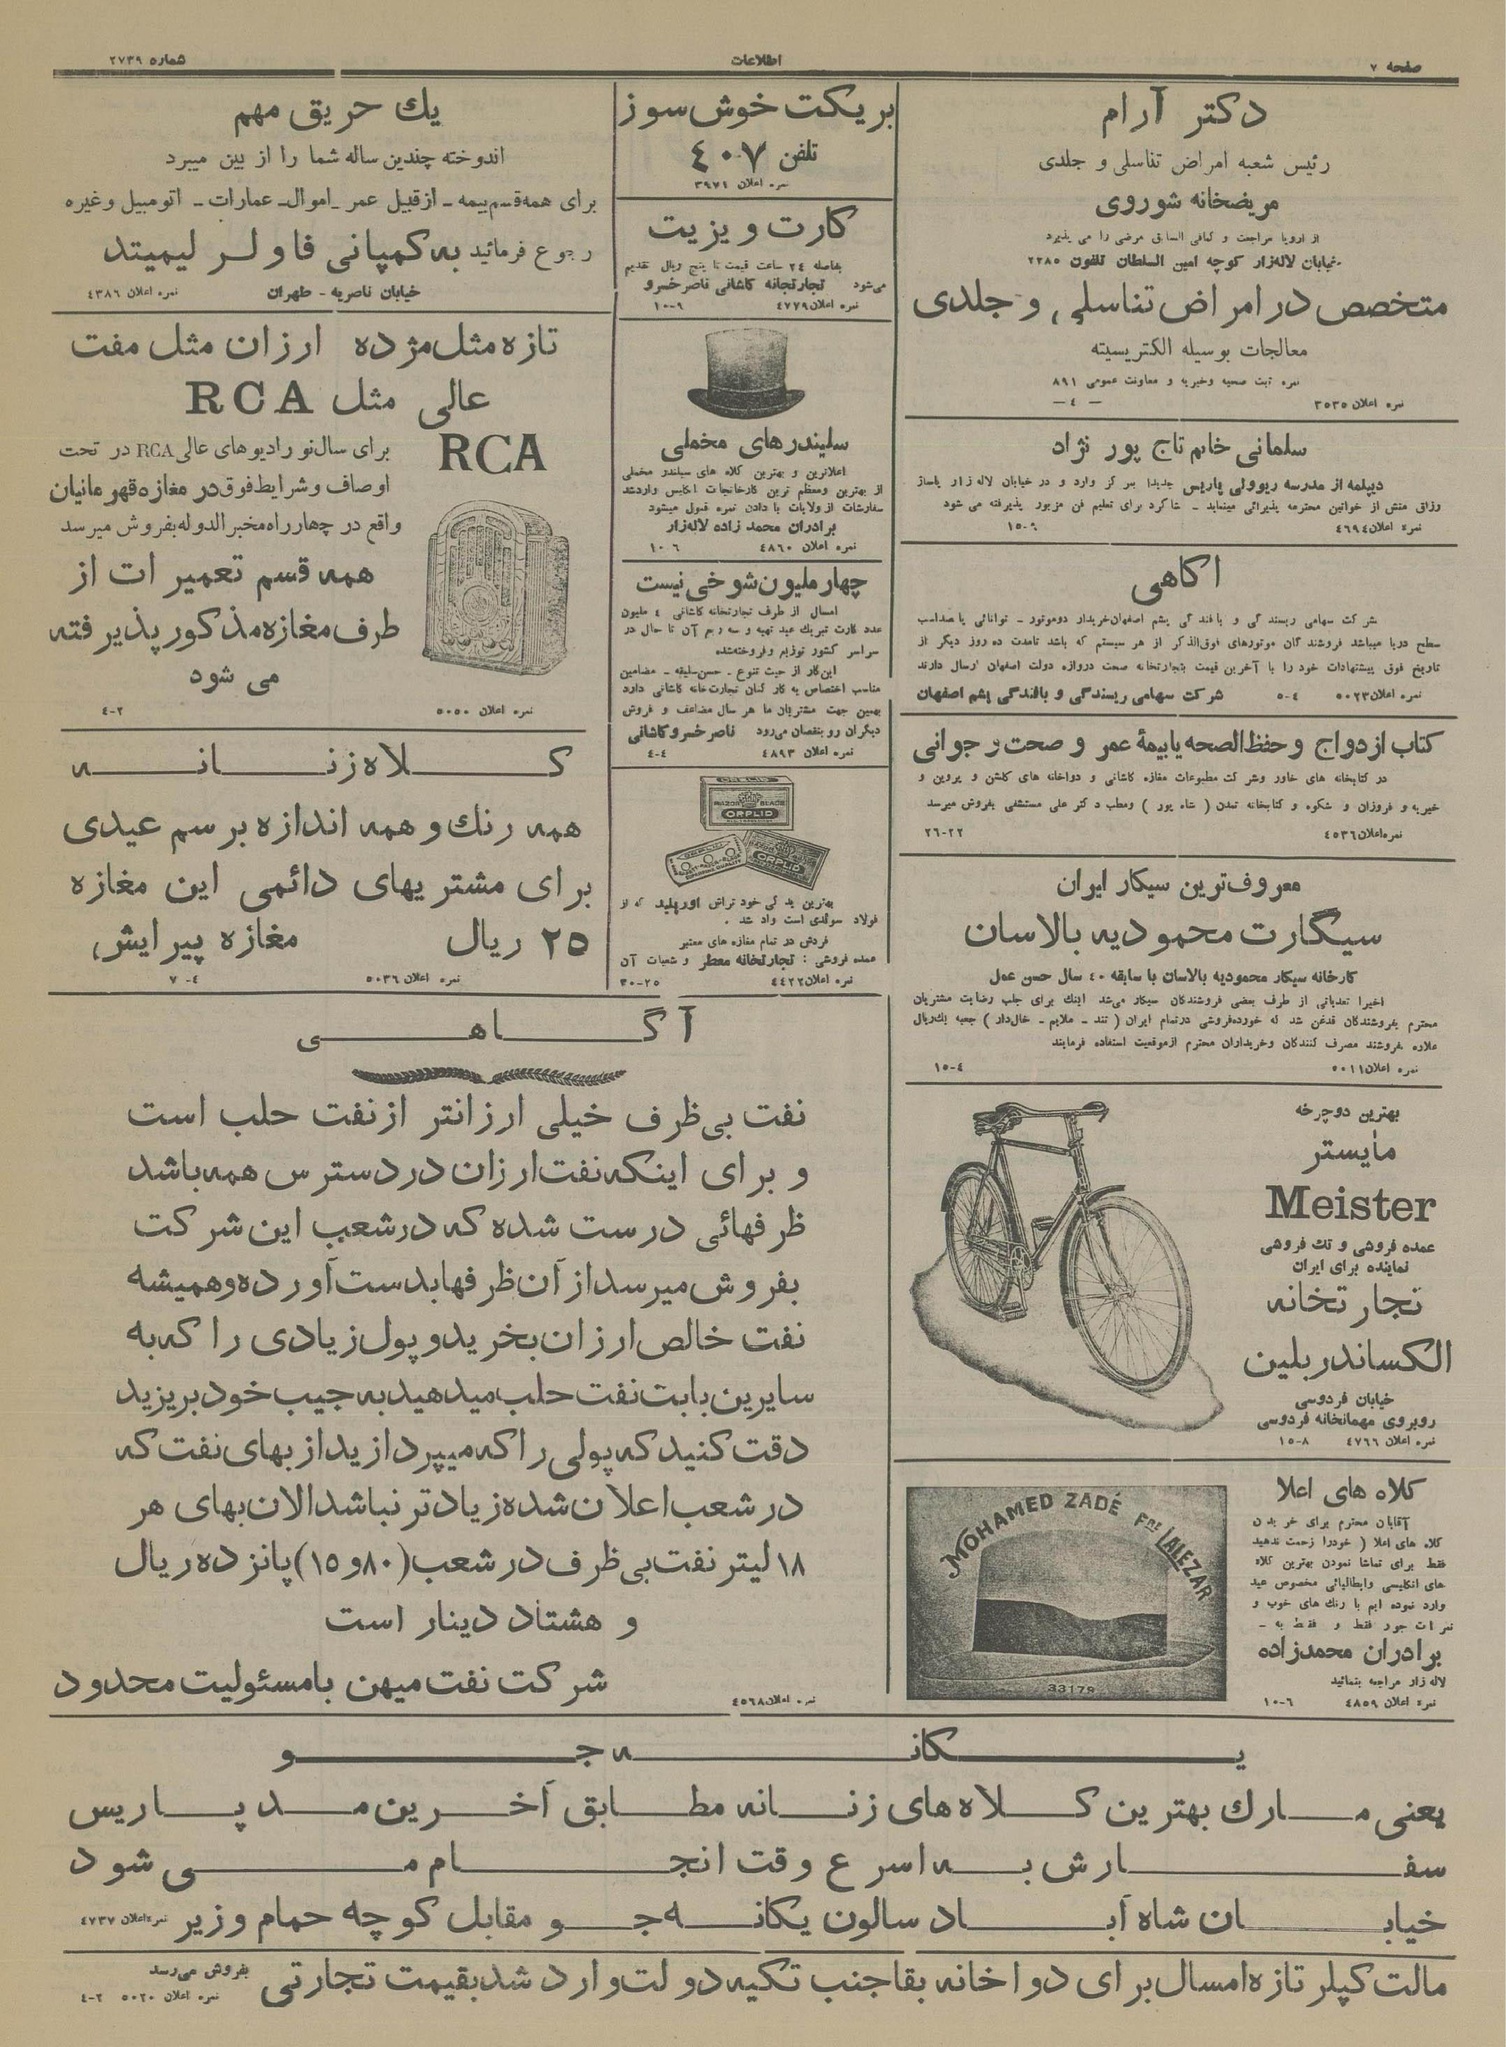 صفحه ۷
اطلاعات
شماره ۲۷۳۹
دکتر آرام
رئیس شعبه امراض تناسلی و جلدی
مریضخانه شوروی
از اروپا مراجعت و کمافی السابق مرضی را می پذیرد
خیابان لاله‌زار کوچه امین السلطان تلفون ۲۲۸۵
متخصص در امراض تناسلی و جلدی
معالجات بوسیله الکتریسیته
نمره ثبت صحیه و خیریه و معاونت عمومی ۸۹۱
نمره اعلان ۳۵۳۵ — ٤ —
سلمانی خانم تاج پور نژاد
دیپلمه از مدرسه ریوولی پاریس جدیدا بمرکز وارد و در خیابان لاله زار پاساژ
رزاق منش از خوانین محترمه پذیرائی مینماید - شاگرد برای تعلیم فن مزبور پذیرفته می شود
نمره اعلان ٤٦۹٤ ۱۵-۹
اکاهی
شرکت سهامی ریسندگی و بافندگی پشم اصفهان خریدار دو موتور - توانائی پا صد اسب
سطح دریا میباشد فروشندگان موتورهای فوق‌الذکر از هر سیستم که باشد تا مدت ده روز دیگر از
تاریخ فوق پیشنهادات خود را با آخرین قیمت بتجارتخانه صحت دروازه دولت اصفهان ارسال دارند
نمره اعلان ۵۰۲۳ ۵-٤ شرکت سهامی ریسندگی و بافندگی پشم اصفهان
کتاب ازدواج و حفظ‌الصحه یا بیمهٔ عمر و صحت و جوانی
در کتابخانه های خاور و شرکت مطبوعات مغازه کاشانی و دواخانه های گلشن و پروین و
خیریه و فروزان و شکوه و کتابخانه تمدن (شاه پور) و مطب دکتر علی مستشفی بفروش میرسد
نمره اعلان ٤۵۳٦ ۲٦-۲۲
معروف‌ترین سیکار ایران
سیگارت محمودیه بالاسان
کارخانه سیکار محمودیه بالاسان با سابقه ٤۰ سال حسن عمل
اخیرا تعدیاتی از طرف بعضی فروشندگان سیکار می‌شد اینک برای جلب رضایت مشتریان
محترم بفروشندگان قدغن شد که خورده‌فروشی در تمام ایران (تند - ملایم - خال‌دار) جعبه یک‌ریال
علاوه نفروشند مصرف کنندگان و خریداران محترم از موقعیت استفاده فرمایند
نمره اعلان ۵۰۱۱ ۱۵-٤
بهترین دوچرخه
مایستر
Meister
عمده فروشی و تک فروشی
نماینده برای ایران
تجارتخانه
الکساندر بلین
خیابان فردوسی
روبروی مهمانخانه فردوسی
نمره اعلان ٤۷٦٦ ۱۵-۸
کلاه های اعلا
آقایان محترم برای خریدن
کلاه های اعلا (خود را زحمت ندهید
فقط برای تماشا نمودن بهترین کلاه
های انگلیسی و ایطالیائی مخصوص عید
وارد نموده ایم با رنک های خوب و
نمرات جور فقط و فقط به -
برادران محمدزاده
لاله زار مراجعه بنمائید
نمره اعلان ٤۸۵۹ ۱۰-٦
MOHAMED ZADÉ FRE LALEZAR
33179
بریکت خوش سوز
تلفن ٤۰۷
نمره اعلان ۳۹۷۱
کارت ویزیت
بفاصله ۲٤ ساعت قیمت تا پنج ریال تقدیم
می‌شود تجارتخانه کاشانی ناصر خسرو
نمره اعلان ٤۷۷۹ ۱۰-۹
سلیندرهای مخملی
اعلاترین و بهترین کلاه های سیلندر مخملی
از بهترین و معظم ترین کارخانجات انگلیس وارد شد
سفارشات از ولایات با دادن نمره قبول میشود
برادران محمد زاده لاله‌زار
نمره اعلان ٤۸٦۰ ۱۰-٦
چهار ملیون شوخی نیست
امسال از طرف تجارتخانه کاشانی ٤ ملیون
عدد کارت تبریک عید تهیه و سه ربع آن تا حال در
سراسر کشور توزیع و فروخته شده
این کار از حیث تنوع - حسن سلیقه - مضامین
مناسب اختصاص به کارکنان تجارت‌خانه کاشانی دارد
بهمین جهت مشتریان ما هر سال مضاعف و فروش
دیگران رو بنقصان می‌رود ناصر خسرو کاشانی
نمره اعلان ٤۸۹۳ ٤-٤
RAZOR BLADE
ORPLID
ORPLID
ORPLID
بهترین یدکی خود تراش اورپلید که از
فولاد سوئدی است وارد شد .
فروش در تمام مغازه های معتبر
عمده فروشی : تجارتخانه معطر و شعبات آن
نمره اعلان ٤٤۲۲ ۳۰-۲۵
یک حریق مهم
اندوخته چندین ساله شما را از بین میبرد
برای همه قسم بیمه - از قبیل عمر - اموال - عمارات - اتومبیل و غیره
رجوع فرمائید به کمپانی فاولر لیمیتد
خیابان ناصریه - طهران نمره اعلان ٤۳۸٦
تازه مثل مژده ارزان مثل مفت
عالی مثل RCA
RCA
برای سال نو رادیو های عالی RCA در تحت
اوصاف و شرایط فوق در مغازه قهرمانیان
واقع در چهار راه مخبرالدوله بفروش میرسد
همه قسم تعمیرات از
طرف مغازه مذکور پذیرفته
می شود
نمره اعلان ۵۰۵۰ ٤-۲
کلاه زنانه
همه رنک و همه اندازه برسم عیدی
برای مشتریهای دائمی این مغازه
۲۵ ریال مغازه پیرایش
نمره اعلان ۵۰۳٦ ۷-٤
آگاهی
نفت بی‌ظرف خیلی ارزانتر از نفت حلب است
و برای اینکه نفت ارزان در دسترس همه باشد
ظرفهائی درست شده که در شعب این شرکت
بفروش میرسد از آن ظرفها بدست آورده و همیشه
نفت خالص ارزان بخرید و پول زیادی را که به
سایرین بابت نفت حلب میدهید به جیب خود بریزید
دقت کنید که پولی را که میپردازید از بهای نفت که
در شعب اعلان شده زیادتر نباشد الان بهای هر
۱۸ لیتر نفت بی ظرف در شعب (۸۰ و ۱۵) پانزده ریال
و هشتاد دینار است
شرکت نفت میهن با مسئولیت محدود
نمره اعلان ٤۵٦۸
یکانه جو
یعنی مارک بهترین کلاه های زنانه مطابق آخرین مد پاریس
سفارش به اسرع وقت انجام می شود
خیابان شاه آباد سالون یکانه جو مقابل کوچه حمام وزیر نمره اعلان ٤۷۳۷
مالت کپلر تازه امسال برای دواخانه بقا جنب تکیه دولت وارد شد بقیمت تجارتی بفروش می‌رسد
نمره اعلان ۵۰۲۰ ٤-۲